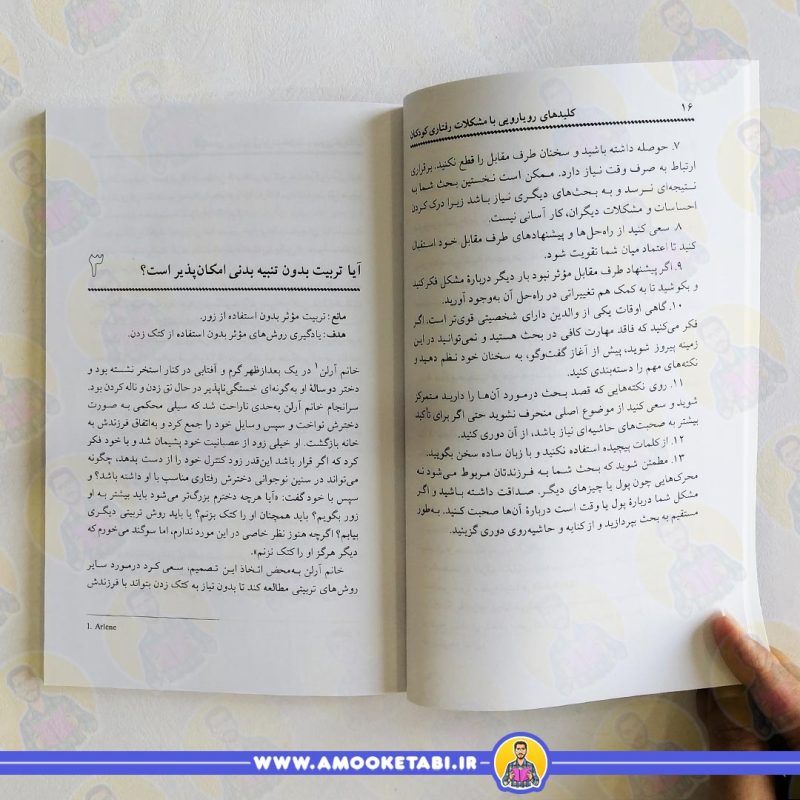 ۱۶
کلیدهای رویارویی با مشکلات رفتاری کودکان
۷. حوصله داشته باشید و سخنان طرف مقابل را قطع نکنید. برقراری
ارتباط به صرف وقت نیاز دارد. ممکن است نخستین بحث شما به
نتیجه‌ای نرسد و به بحث‌های دیگری نیاز باشد زیرا درک کردن
احساسات و مشکلات دیگران، کار آسانی نیست.
۸. سعی کنید از راه‌حل‌ها و پیشنهادهای طرف مقابل خود استقبال
کنید تا اعتماد میان شما تقویت شود.
۹. اگر پیشنهاد طرف مقابل مؤثر نبود بار دیگر دربارهٔ مشکل فکر کنید
و بکوشید تا به کمک هم تغییراتی در راه‌حل آن به‌وجود آورید.
۱۰. گاهی اوقات یکی از والدین دارای شخصیتی قوی‌تر است. اگر
فکر می‌کنید که فاقد مهارت کافی در بحث هستید و نمی‌توانید در این
زمینه پیروز شوید، پیش از آغاز گفت‌وگو، به سخنان خود نظم دهید و
نکته‌های مهم را دسته‌بندی کنید.
۱۱. روی نکته‌هایی که قصد بحث درمورد آن‌ها را دارید متمرکز
شوید و سعی کنید از موضوع اصلی منحرف نشوید حتی اگر برای تأکید
بیشتر به صحبت‌های حاشیه‌ای نیاز باشد، از آن دوری کنید.
۱۲. از کلمات پیچیده استفاده نکنید و با زبان ساده سخن بگویید.
۱۳. مطمئن شوید که بحث شما به فرزندتان مربوط می‌شود نه
محرک‌هایی چون پول یا چیزهای دیگر. صداقت داشته باشید و اگر
مشکل شما دربارهٔ پول یا وقت است دربارهٔ آن‌ها صحبت کنید. به‌طور
مستقیم به بحث بپردازید و از کنایه و حاشیه‌روی دوری گزینید.
۳
آیا تربیت بدون تنبیه بدنی امکان‌پذیر است؟
مانع: تربیت مؤثر بدون استفاده از زور.
هدف: یادگیری روش‌های مؤثر بدون استفاده از کتک زدن.
خانم آرلن۱ در یک بعدازظهر گرم و آفتابی در کنار استخر نشسته بود و
دختر دوسالهٔ او به‌گونه‌ای خستگی‌ناپذیر در حال نق زدن و ناله کردن بود.
سرانجام خانم آرلن به‌حدی ناراحت شد که سیلی محکمی به صورت
دخترش نواخت و سپس وسایل خود را جمع کرد و به‌اتفاق فرزندش به
خانه بازگشت. او خیلی زود از عصبانیت خود پشیمان شد و با خود فکر
کرد که اگر قرار باشد این‌قدر زود کنترل خود را از دست بدهد، چگونه
می‌تواند در سنین نوجوانی دخترش رفتاری مناسب با او داشته باشد؟ و
سپس با خود گفت: «آیا هرچه دخترم بزرگ‌تر می‌شود باید بیشتر به او
زور بگویم؟ باید همچنان او را کتک بزنم؟ یا باید روش تربیتی دیگری
بیابم؟ اگرچه هنوز نظر خاصی در این مورد ندارم، اما سوگند می‌خورم که
دیگر هرگز او را کتک نزنم».
خانم آرلن به‌محض اتخاذ این تصمیم، سعی کرد درمورد سایر
روش‌های تربیتی مطالعه کند تا بدون نیاز به کتک زدن بتواند با فرزندش
1. Arlene
WWW.AMOOKETABI.IR